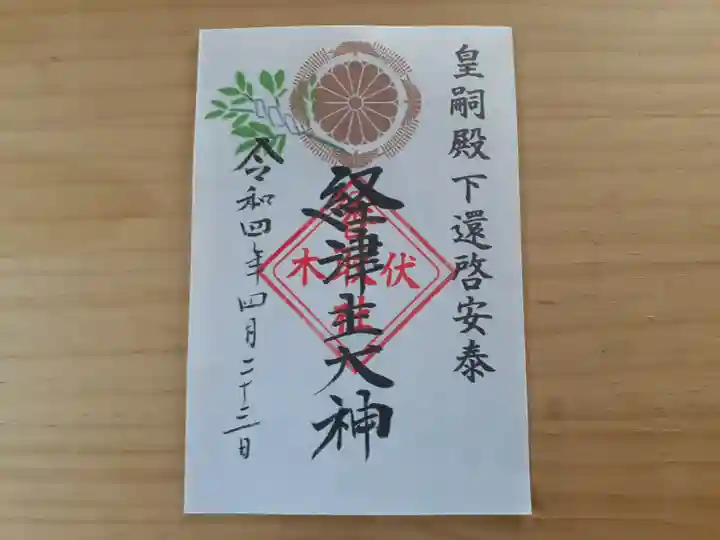 皇嗣殿下還啓安泰
経津主大神
伏木
令和四年四月二十三日